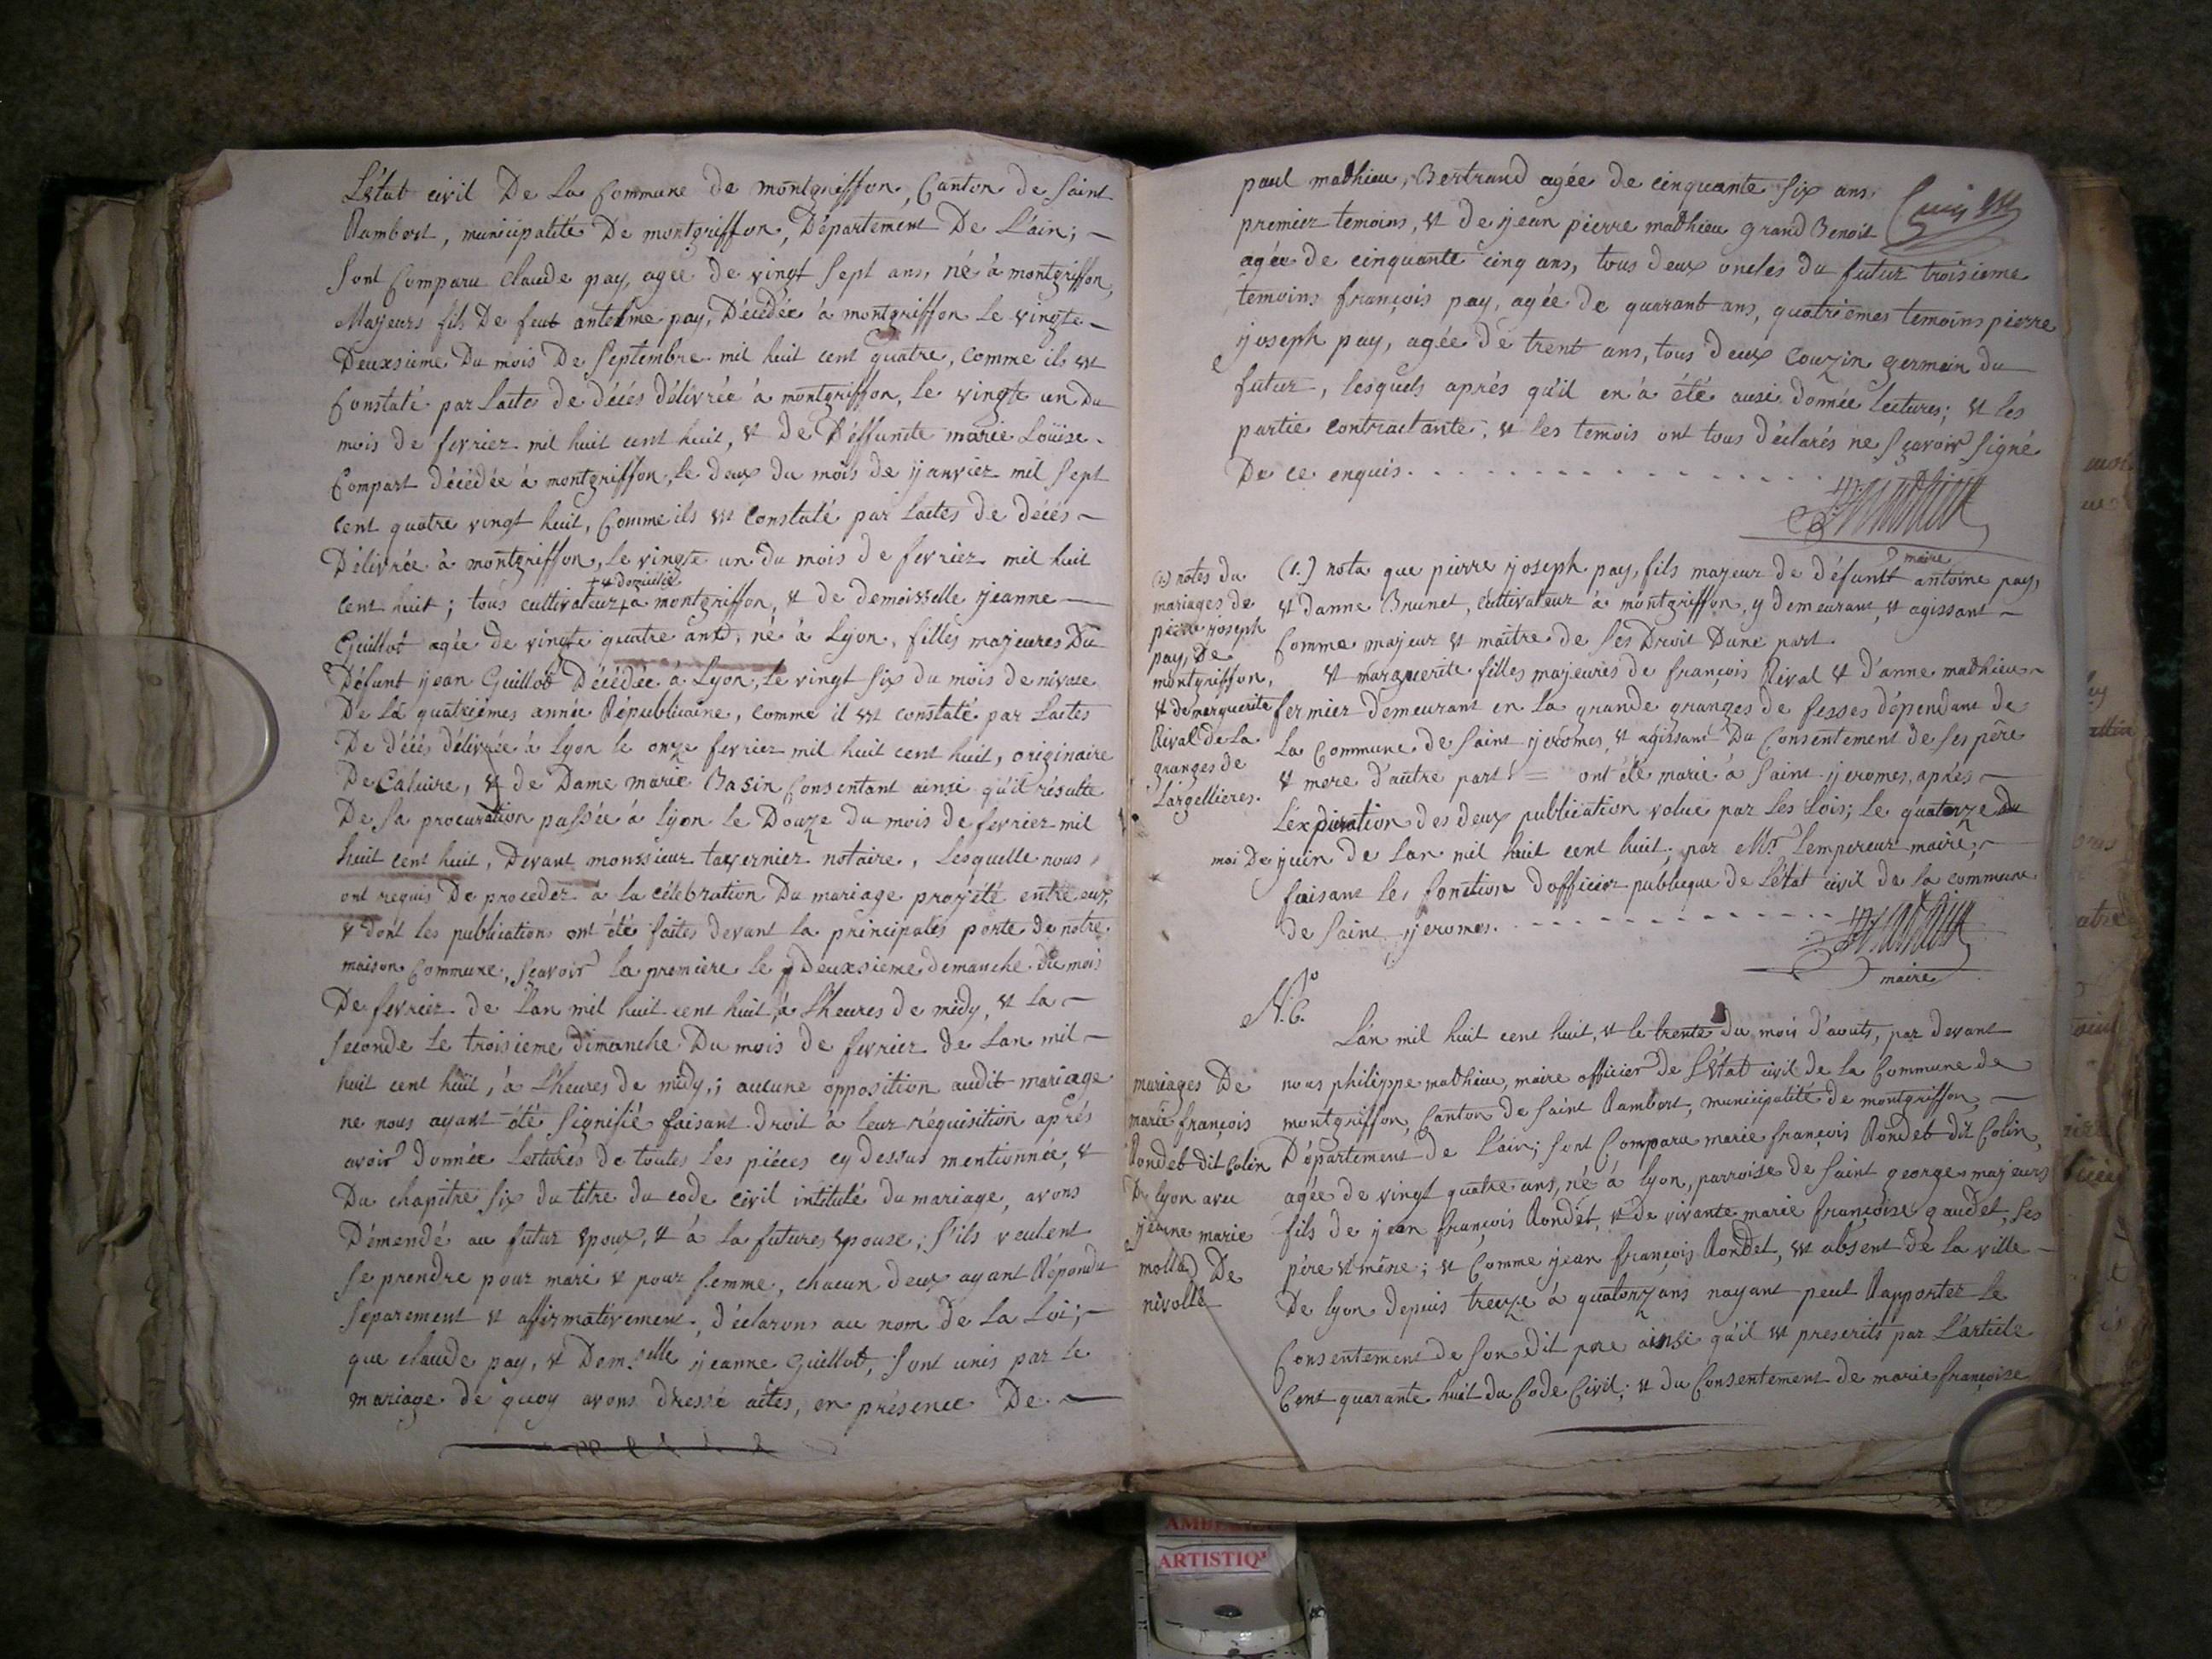 L'état civil De La Commune de montgriffon, Canton de Saint
Rambert, municipalité De montgriffon, Département De L'ain; —
sont Comparu Claude pay, agée de vingt sept ans, né à montgriffon,
Majeurs fils De feut antelme pay, Décédée à montgriffon Le vingte —
Deuxsieme Du mois De Septembre mil huit cent quatre, comme ils est
Constaté par Lactes de décés délivrée à montgriffon, Le vingte un Du
mois de fevrier mil huit cent huit, et de Déffunte marie Loüise
Compart décédée à montgriffon, Le deux du mois de ijanvier mil Sept
cent quatre vingt huit, Comme ils est Constaté par Lactes de décés —
Délivrée à montgriffon, Le vingte un du mois de fevrier mil huit
+ et domicilié
cent huit; tous cultivateur + à montgriffon, et de demoisselle ijeanne —
Guillot agée de vingte quatre ans, né à Lyon, filles majeures Du
Défunt ijean Guillot Décédée à Lyon, Le vingt six du mois de nivose
De La quatriémes année Républicaine, comme il est constaté par Lactes
De décés délivrée à Lyon le onze fevrier mil huit cent huit, originaire
De Caluire, et de Dame marie Basin Consentant ainsi qu'il résulte
De Sa procuration passée à Lyon le Douze du mois de fevrier mil
huit cent huit, Devant monssieur tavernier notaire, Lesquelle nous
ont requis De proceder à la célebration Du mariage projeté entre eux,
et dont les publications ont été faites devant La principales porte de notre
maison Commune, Sçavoir la premiere le Deuxsieme demanche du mois
De fevrier de Lan mil huit cent huit, à L'heures de midy, et La —
seconde Le troisieme dimanche Du mois de fevrier de Lan mil —
huit cent huit, à L'heures de midy,; aucune opposition audit mariage
ne nous ayant été Signifié faisant droit à leur réquisition aprés
avoir donnée Lectures de toutes les piéces cy dessus mentionnée, et
Du chapitre Six du titre du code civil intitulé du mariage, avons
Démendé au futur Epoux, et à la futures Epouse; S'ils veulent
Se prendre pour mari et pour femme, chacun deux ayant Répondu
Séparement et affirmativement, déclarons au nom de La Loi; —
que claude pay, et Demselle ijeanne Guillot, Sont unis par Le
mariage de quoy avons dressé actes, en présence De —
paul mathieu, Bertrand agée de cinquante Six ans,
premier temoins, et de ijean pierre mathieu grand Benoit
agée de cinquante cinq ans, tous deux oncles du futur troisieme
temoins françois pay, agée de quarant ans, quatriemes temoins pierre
ijoseph pay, agée de trent ans, tous deux Couzin germain du
futur, lesquels aprés qu'il en à été ausi donnée Lectures; et les
partie contractante, et les temois ont tous déclarés ne Sçavoir Signé
De ce enquis.
maire
(1.) notes du
mariages de
pierre joseph
pay, De
montgriffon,
et de marguerite
Rival de La
granges de
Largellieres.
(1.) nota que pierre ijoseph pay, fils majeur de défuntt antoine pay,
et danne Brunet, cultivateur à montgriffon, y demeurant, et agissant —
Comme majeur et maitre de Ses Droit Dune part.
et marguerite filles majeures de françois Rival et d'anne mathieu
fermier demeurant en La grande granges de fesses dépendant de
La Commune de Saint ijeromes, et agissant Du Consentement de Ses pére
et mere d'autre part = ont été marié à Saint ijeromes, aprés —
L'expiration des deux publication volue par Les Lois; Le quatorze du
moi De juin de Lan mil huit cent huit, par Mr Lempereur maire, —
faisant les fonction dofficier publicque de L'état civil de la commune
de Saint ijeromes.
maire
No 6.
mariages De
marie françois
Rondet dit Colin
De lyon avec
jeanne marie
mollad De
nivolle
L'an mil huit cent huit, et le trente du mois d'aouts, par devant
nous philippe mathieu, maire officier de L'état civil de la Commune de
montgriffon, Canton de Saint Rambert, municipalité de montgriffon, —
Département de L'ain; sont Comparu marie françois Rondet dit Colin,
agée de vingt quatre ans, né à lyon, parroise de Saint george majeurs
fils de ijean françois Rondet, et de vivante marie françoise gaudet, Ses
pére et mére; et Comme ijean françois Rondet, est absent de la ville —
De lyon depuis treize à quatorz ans nayant peut Rapporter Le
Consentement de Son Dit pere ainsi qu'il est prescrits par L'article
Cent quarante huit du Code Civil; et du Consentement de marie françoise
ARTISTIQ